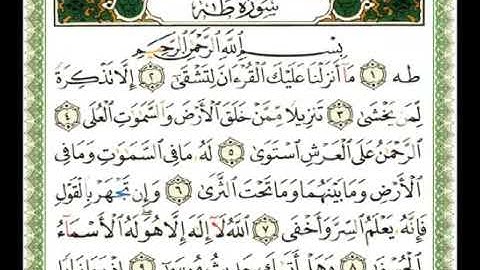 سُورَةُ طه
بِسْمِ اللَّهِ الرَّحْمَٰنِ الرَّحِيمِ
طه ١ مَا أَنزَلْنَا عَلَيْكَ الْقُرْءَانَ لِتَشْقَىٰ ٢ إِلَّا تَذْكِرَةً
لِّمَن يَخْشَىٰ ٣ تَنزِيلًا مِّمَّنْ خَلَقَ الْأَرْضَ وَالسَّمَٰوَٰتِ الْعُلَى ٤
الرَّحْمَٰنُ عَلَى الْعَرْشِ اسْتَوَىٰ ٥ لَهُ مَا فِي السَّمَٰوَٰتِ وَمَا فِي
الْأَرْضِ وَمَا بَيْنَهُمَا وَمَا تَحْتَ الثَّرَىٰ ٦ وَإِن تَجْهَرْ بِالْقَوْلِ
فَإِنَّهُ يَعْلَمُ السِّرَّ وَأَخْفَى ٧ اللَّهُ لَا إِلَٰهَ إِلَّا هُوَ لَهُ الْأَسْمَاءُ
الْحُسْنَىٰ ٨ وَهَلْ أَتَىٰكَ حَدِيثُ مُوسَىٰ ٩ إِذْ رَءَا نَارًا